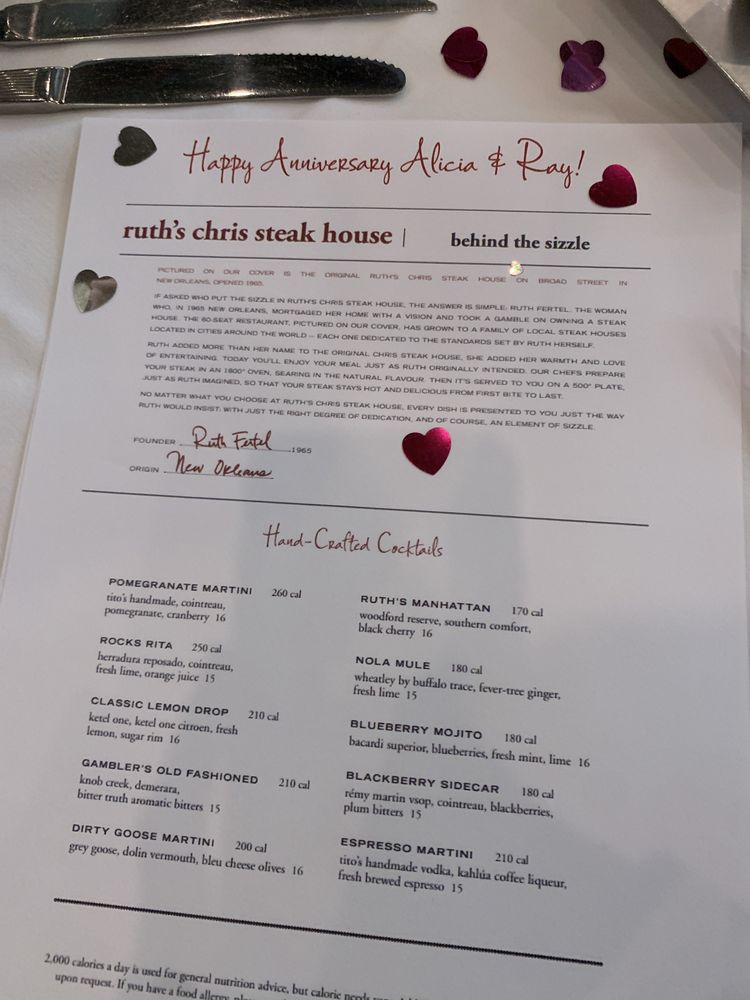 Happy Anniversary Alicia & Ray!
ruth's chris steak house | behind the sizzle
PICTURED ON OUR COVER IS THE ORIGINAL RUTH'S CHRIS STEAK HOUSE ON BROAD STREET IN
NEW ORLEANS, OPENED 1965.
IF ASKED WHO PUT THE SIZZLE IN RUTH'S CHRIS STEAK HOUSE, THE ANSWER IS SIMPLE: RUTH FERTEL. THE WOMAN
WHO, IN 1965 NEW ORLEANS, MORTGAGED HER HOME WITH A VISION AND TOOK A GAMBLE ON OWNING A STEAK
HOUSE. THE 60-SEAT RESTAURANT, PICTURED ON OUR COVER, HAS GROWN TO A FAMILY OF LOCAL STEAK HOUSES
LOCATED IN CITIES AROUND THE WORLD – EACH ONE DEDICATED TO THE STANDARDS SET BY RUTH HERSELF.
RUTH ADDED MORE THAN HER NAME TO THE ORIGINAL CHRIS STEAK HOUSE, SHE ADDED HER WARMTH AND LOVE
OF ENTERTAINING. TODAY YOU'LL ENJOY YOUR MEAL JUST AS RUTH ORIGINALLY INTENDED. OUR CHEFS PREPARE
YOUR STEAK IN AN 1800° OVEN, SEARING IN THE NATURAL FLAVOUR. THEN IT'S SERVED TO YOU ON A 500° PLATE,
JUST AS RUTH IMAGINED, SO THAT YOUR STEAK STAYS HOT AND DELICIOUS FROM FIRST BITE TO LAST.
NO MATTER WHAT YOU CHOOSE AT RUTH'S CHRIS STEAK HOUSE, EVERY DISH IS PRESENTED TO YOU JUST THE WAY
RUTH WOULD INSIST: WITH JUST THE RIGHT DEGREE OF DEDICATION, AND OF COURSE, AN ELEMENT OF SIZZLE.
FOUNDER Ruth Fertel, 1965
ORIGIN New Orleans
Hand-Crafted Cocktails
POMEGRANATE MARTINI 260 cal
tito's handmade, cointreau,
pomegranate, cranberry 16
ROCKS RITA 250 cal
herradura reposado, cointreau,
fresh lime, orange juice 15
CLASSIC LEMON DROP 210 cal
ketel one, ketel one citroen, fresh
lemon, sugar rim 16
GAMBLER'S OLD FASHIONED 210 cal
knob creek, demerara,
bitter truth aromatic bitters 15
DIRTY GOOSE MARTINI 200 cal
grey goose, dolin vermouth, bleu cheese olives 16
RUTH'S MANHATTAN 170 cal
woodford reserve, southern comfort,
black cherry 16
NOLA MULE 180 cal
wheatley by buffalo trace, fever-tree ginger,
fresh lime 15
BLUEBERRY MOJITO 180 cal
bacardi superior, blueberries, fresh mint, lime 16
BLACKBERRY SIDECAR 180 cal
rémy martin vsop, cointreau, blackberries,
plum bitters 15
ESPRESSO MARTINI 210 cal
tito's handmade vodka, kahlúa coffee liqueur,
fresh brewed espresso 15
2,000 calories a day is used for general nutrition advice, but calorie needs
upon request. If you have a food allergy,